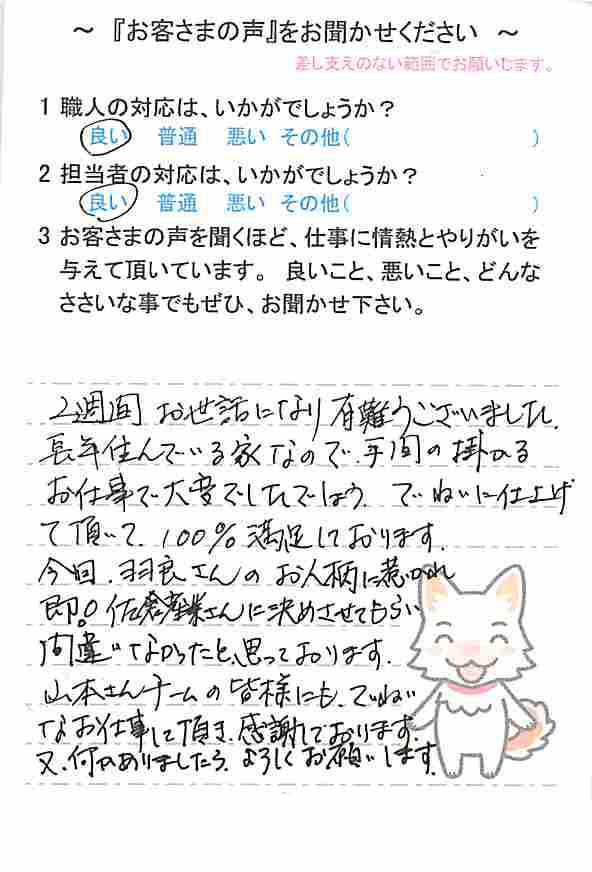 ～ 『お客さまの声』をお聞かせください ～
差し支えのない範囲でお願いします。
1 職人の対応は、いかがでしょうか？
良い 普通 悪い その他( )
2 担当者の対応は、いかがでしょうか？
良い 普通 悪い その他( )
3 お客さまの声を聞くほど、仕事に情熱とやりがいを
与えて頂いています。 良いこと、悪いこと、どんな
ささいな事でもぜひ、お聞かせ下さい。
2週間 お世話になり有難うございました。
長年住んでいる家なので、手間の掛かる
お仕事で大変でしたでしょう。ていねいに仕上げ
て頂いて、100%満足しております。
今回、羽良さんのお人柄に惹かれ
即。佐倉産業さんに決めさせてもらい
間違いなかったと、思っております。
山本さんチームの皆様にも、ていねい
なお仕事して頂き、感謝しております。
又、何かありましたら、よろしくお願いします。